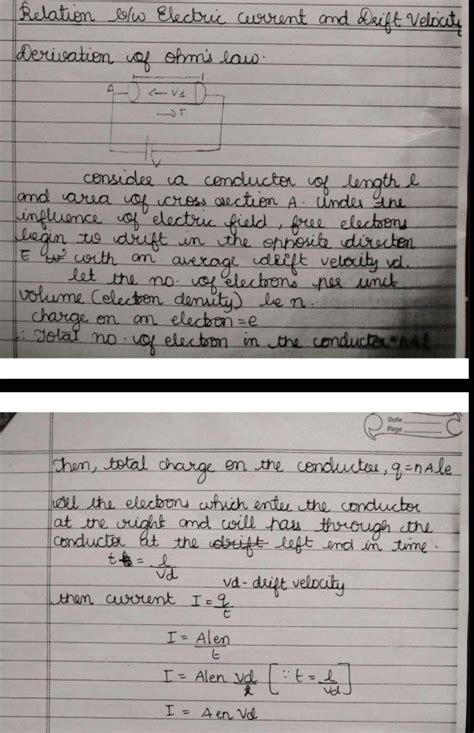 Relation b/w Electric current and Drift Velocity
Derivation of ohm's law.
A ← Vd
→ I
V
consider a conductor of length l
and area of cross section A. Under the
influence of electric field, free electrons
begin to drift in the opposite direction
E with an average drift velocity vd.
let the no. of electrons per unit
volume (electron density) be n.
charge on an electron = e
∴ Total no. of electron in the conductor = nAl
Date
Page
Then, total charge on the conductor, q = nAle
All the electrons which enter the conductor
at the right end will pass through the
conductor at the drift left end in time.
t = l/vd
vd - drift velocity
then current I = q/t
I = Alen/t
I = Alen vd/l [∵ t = l/vd]
I = Aen Vd